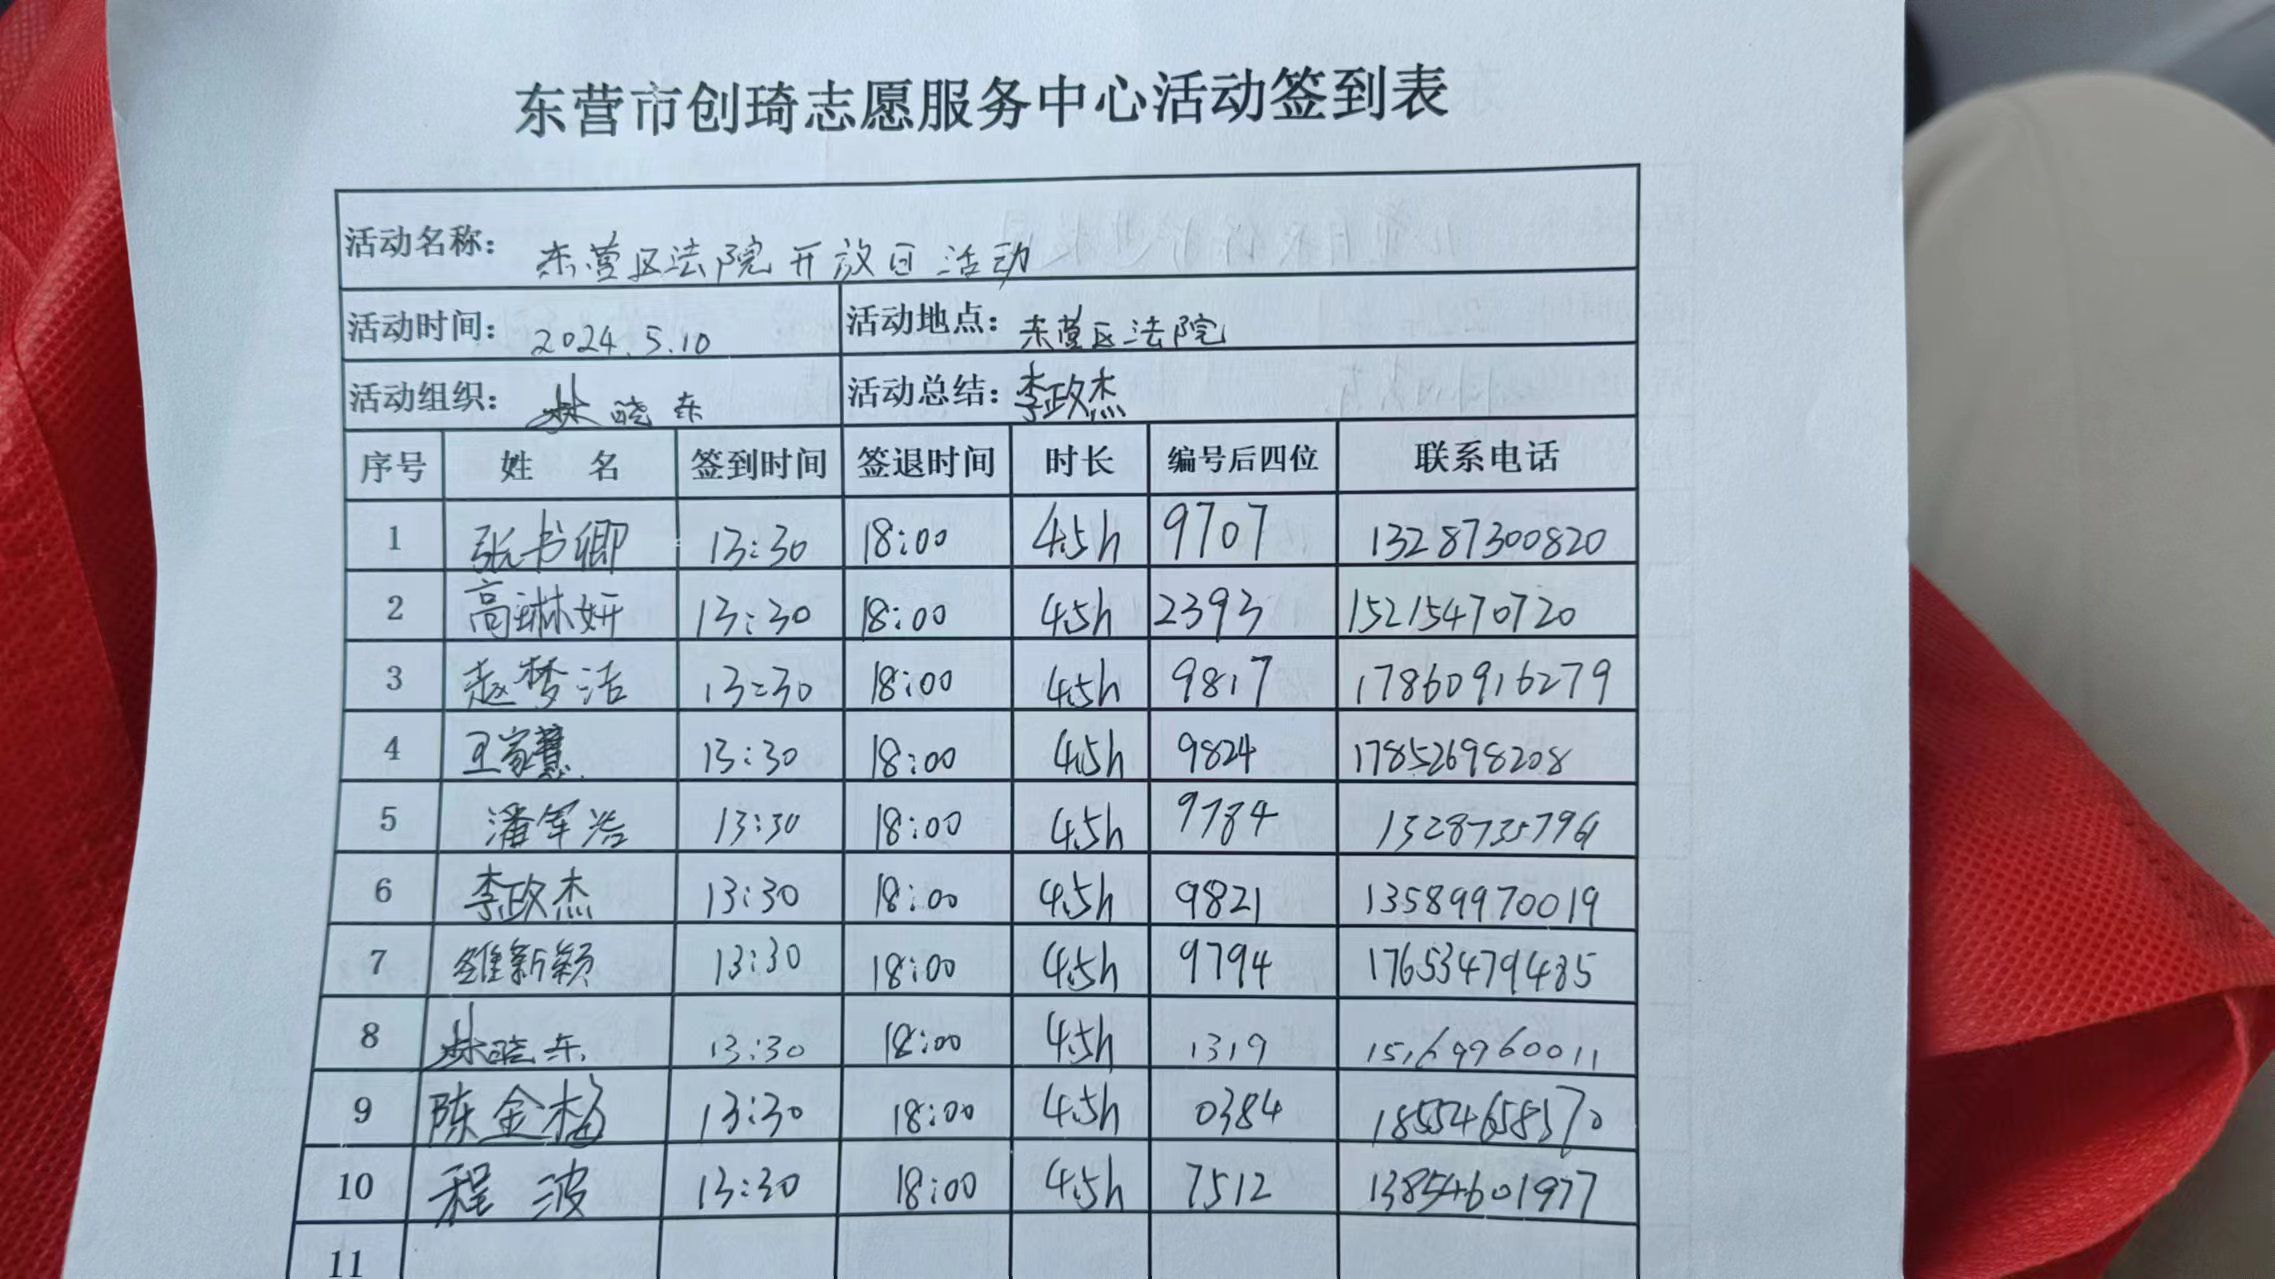 东营市创琦志愿服务中心活动签到表
活动名称： 东营区法院开放日活动
活动时间： 2024.5.10 活动地点： 东营区法院
活动组织： 林晓东 活动总结： 李政杰
序号 姓 名 签到时间 签退时间 时长 编号后四位 联系电话
1 张书卿 13:30 18:00 4.5h 9707 13287300820
2 高琳妍 13:30 18:00 4.5h 2393 15215470720
3 赵梦洁 13:30 18:00 4.5h 9817 17860916279
4 王家慧 13:30 18:00 4.5h 9824 17852698208
5 潘军浩 13:30 18:00 4.5h 9784
6 李政杰 13:30 18:00 4.5h 9821 13589970019
7 新颖 13:30 18:00 4.5h 9794 17653479485
8 林晓东 13:30 18:00 4.5h 1319 15169960011
9 陈金梅 13:30 18:00 4.5h 0384 18554658570
10 程波 13:30 18:00 4.5h 7512 13854601977
11